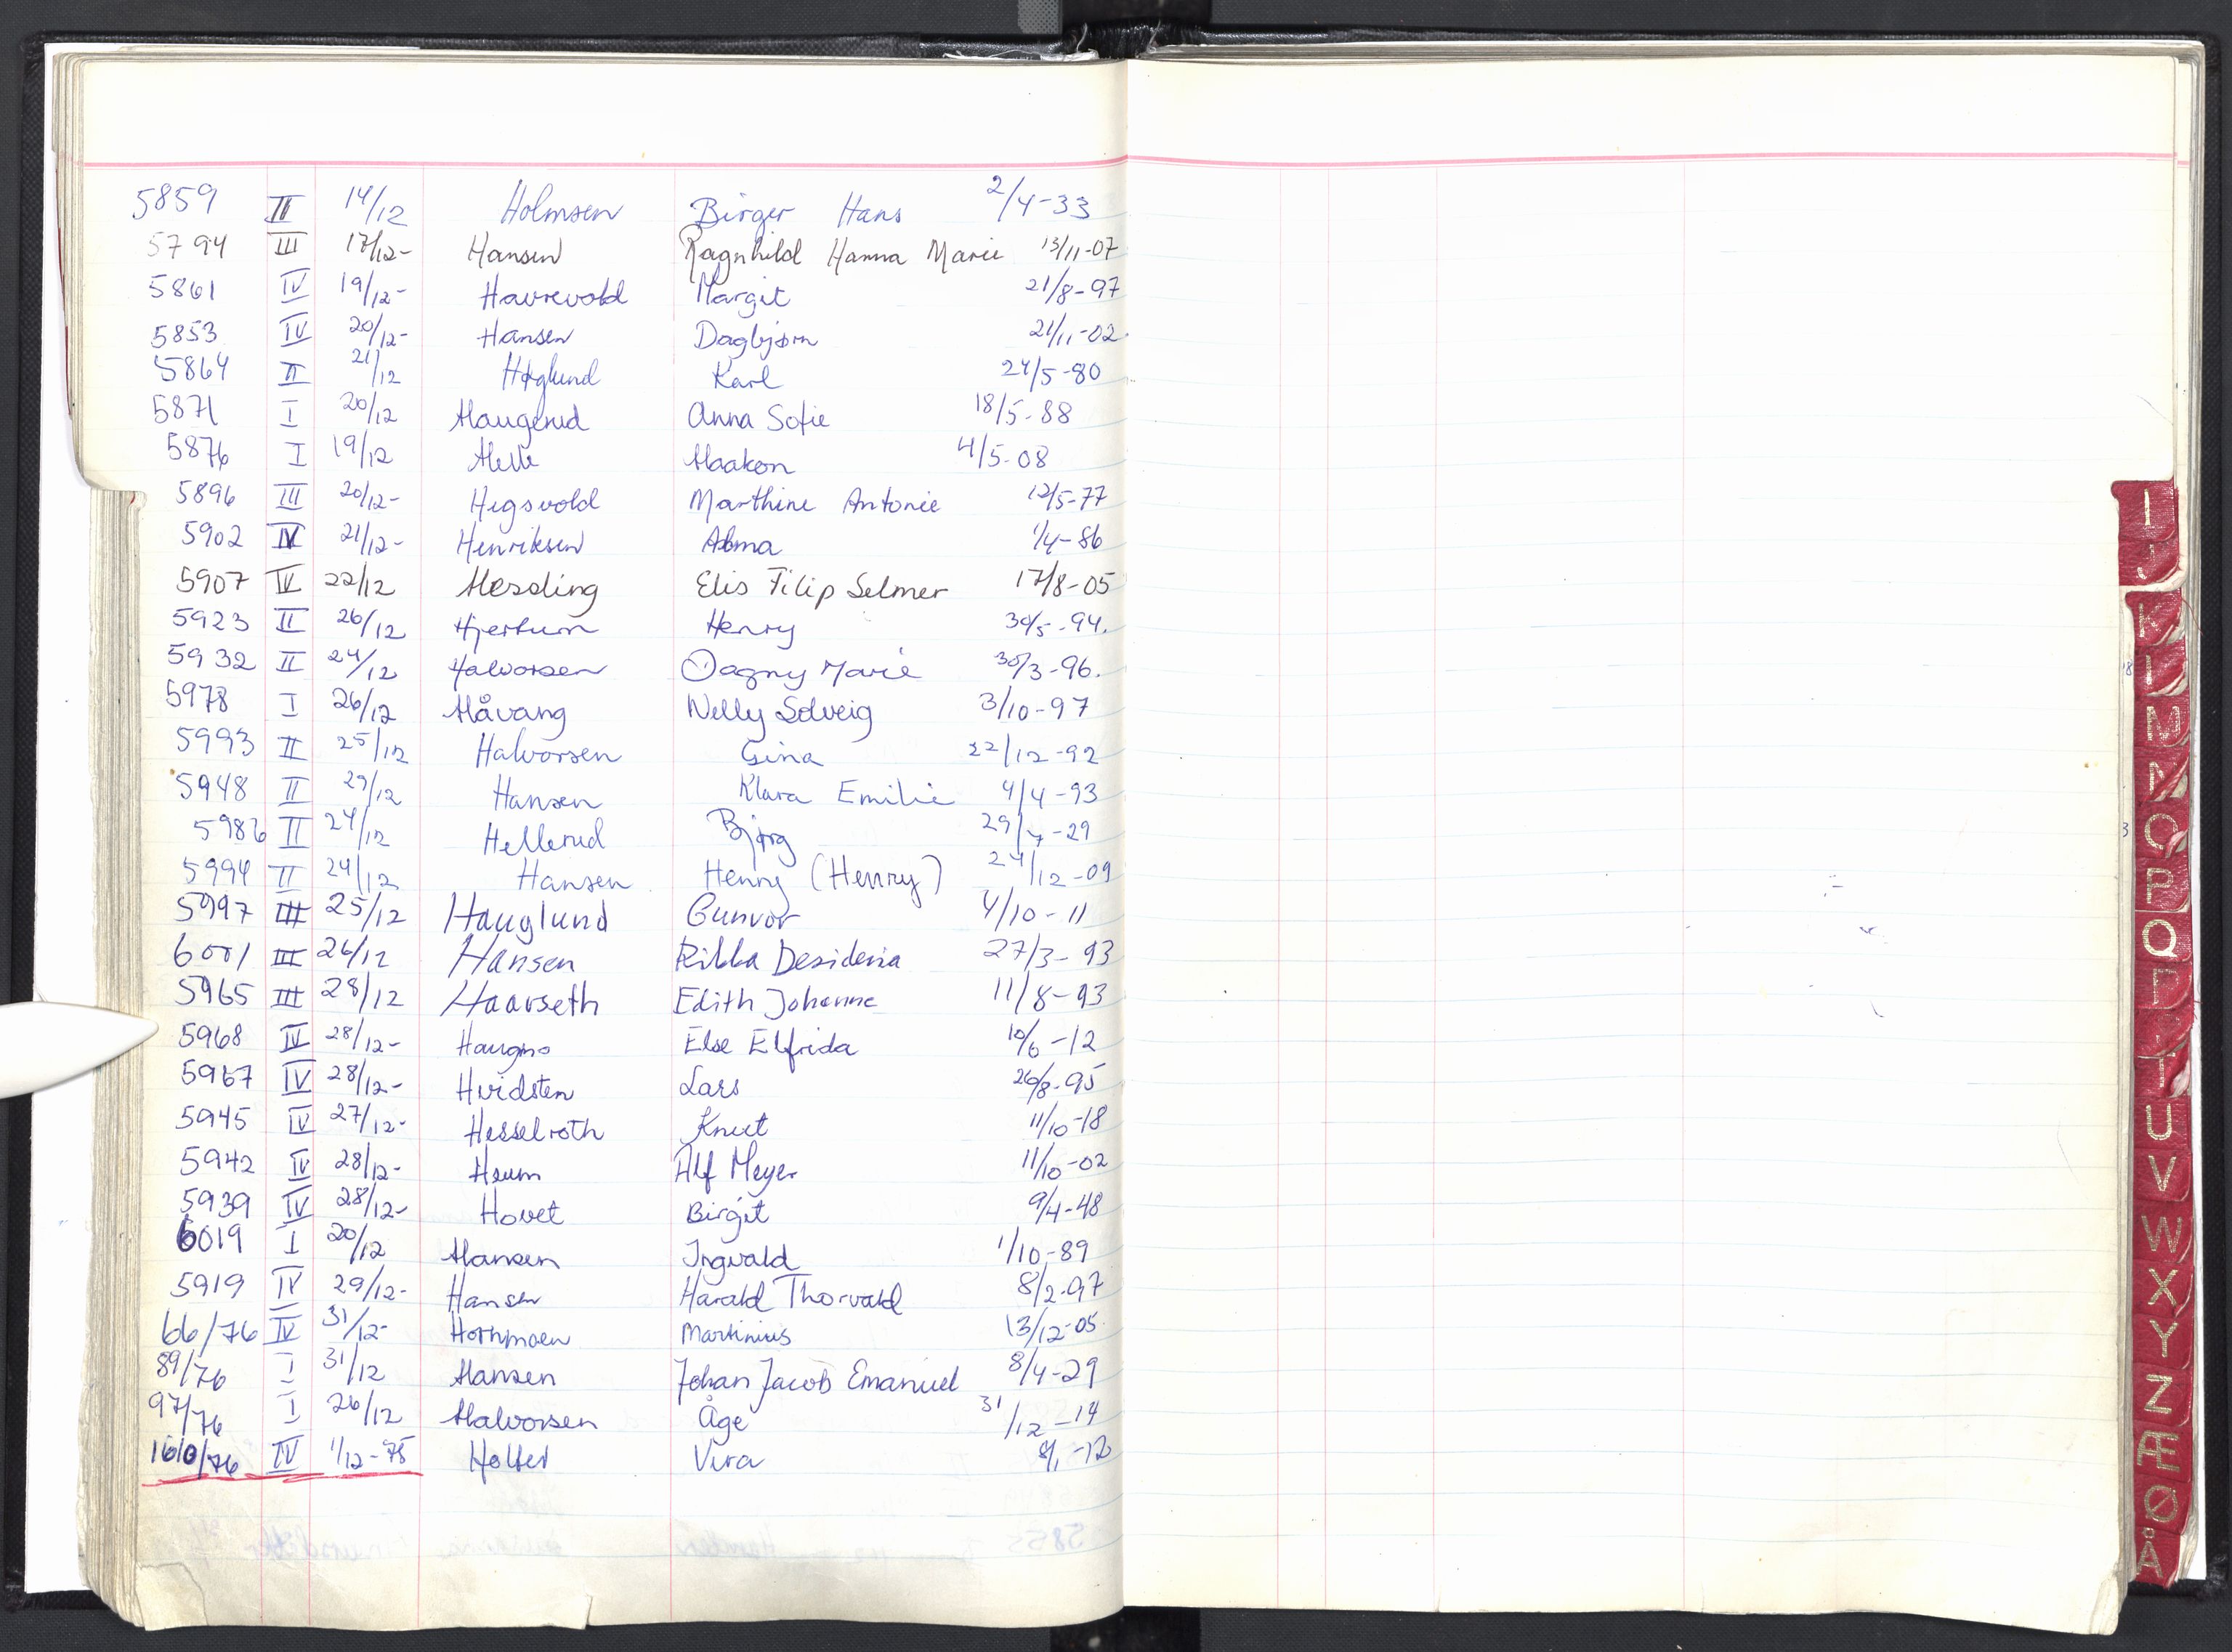 5859 II 14/12 Holmsen Birger Hans 2/4-33
5794 III 17/12- Hansen Ragnhild Hanna Marie 13/11-07
5861 IV 19/12- Havrevold Margit 21/8-97
5853 IV 20/12- Hansen Dagbjørn 21/11-02
5864 II 21/12 Høglund Karl 24/5-80
5871 I 20/12 Haugerud Anna Sofie 18/5-88
5876 I 19/12 Helle Haakon 4/5-08
5896 III 20/12- Hegsvold Marthine Antonie 12/5-77
5902 IV 21/12- Henriksen Alma 1/4-86
5907 IV 22/12 Hesding Elis Filip Selmer 17/8-05
5923 II 26/12 Hjertum Henry 30/5-94.
5932 II 24/12 Halvorsen Dagny Marie 30/3-96.
5978 I 26/12 Håvang Nelly Solveig 3/10-97
5993 II 25/12 Halvorsen Gina 22/12-92
5948 II 29/12 Hansen Klara Emilie 4/4-93
5986 II 24/12 Hellerud Bjørg 29/7-29
5994 II 24/12 Hansen Henny (Henry) 24/12-09
5997 III 25/12 Hauglund Gunvor 4/10-11
6001 III 26/12 Hansen Rikka Desideria 27/3-93
5965 III 28/12 Haarseth Edith Johanne 11/8-93
5968 IV 28/12- Haugmo Else Elfrida 10/6-12
5967 IV 28/12- Hvidsten Lars 26/8-95
5945 IV 27/12- Hesselroth Knut 11/10-18
5942 IV 28/12- Heum Alf Meyer 11/10-02
5939 IV 28/12- Hovet Birgit 9/4-48
6019 I 20/12 Hansen Ingvald 1/10-89
5919 IV 29/12- Hansen Harald Thorvald 8/2-97
66/76 IV 31/12- Hornmoen Martinius 13/12-05
89/76 I 31/12 Hansen Johan Jacob Emanuel 8/4-29
97/76 I 26/12 Halvorsen Åge 31/12-14
160/76 IV 1/12-75 Holter Vera 8/1-12
I
J
K
L
M
N
O
P
Q
R
T
U
V
W
X
Y
Z
Æ
Ø
Å